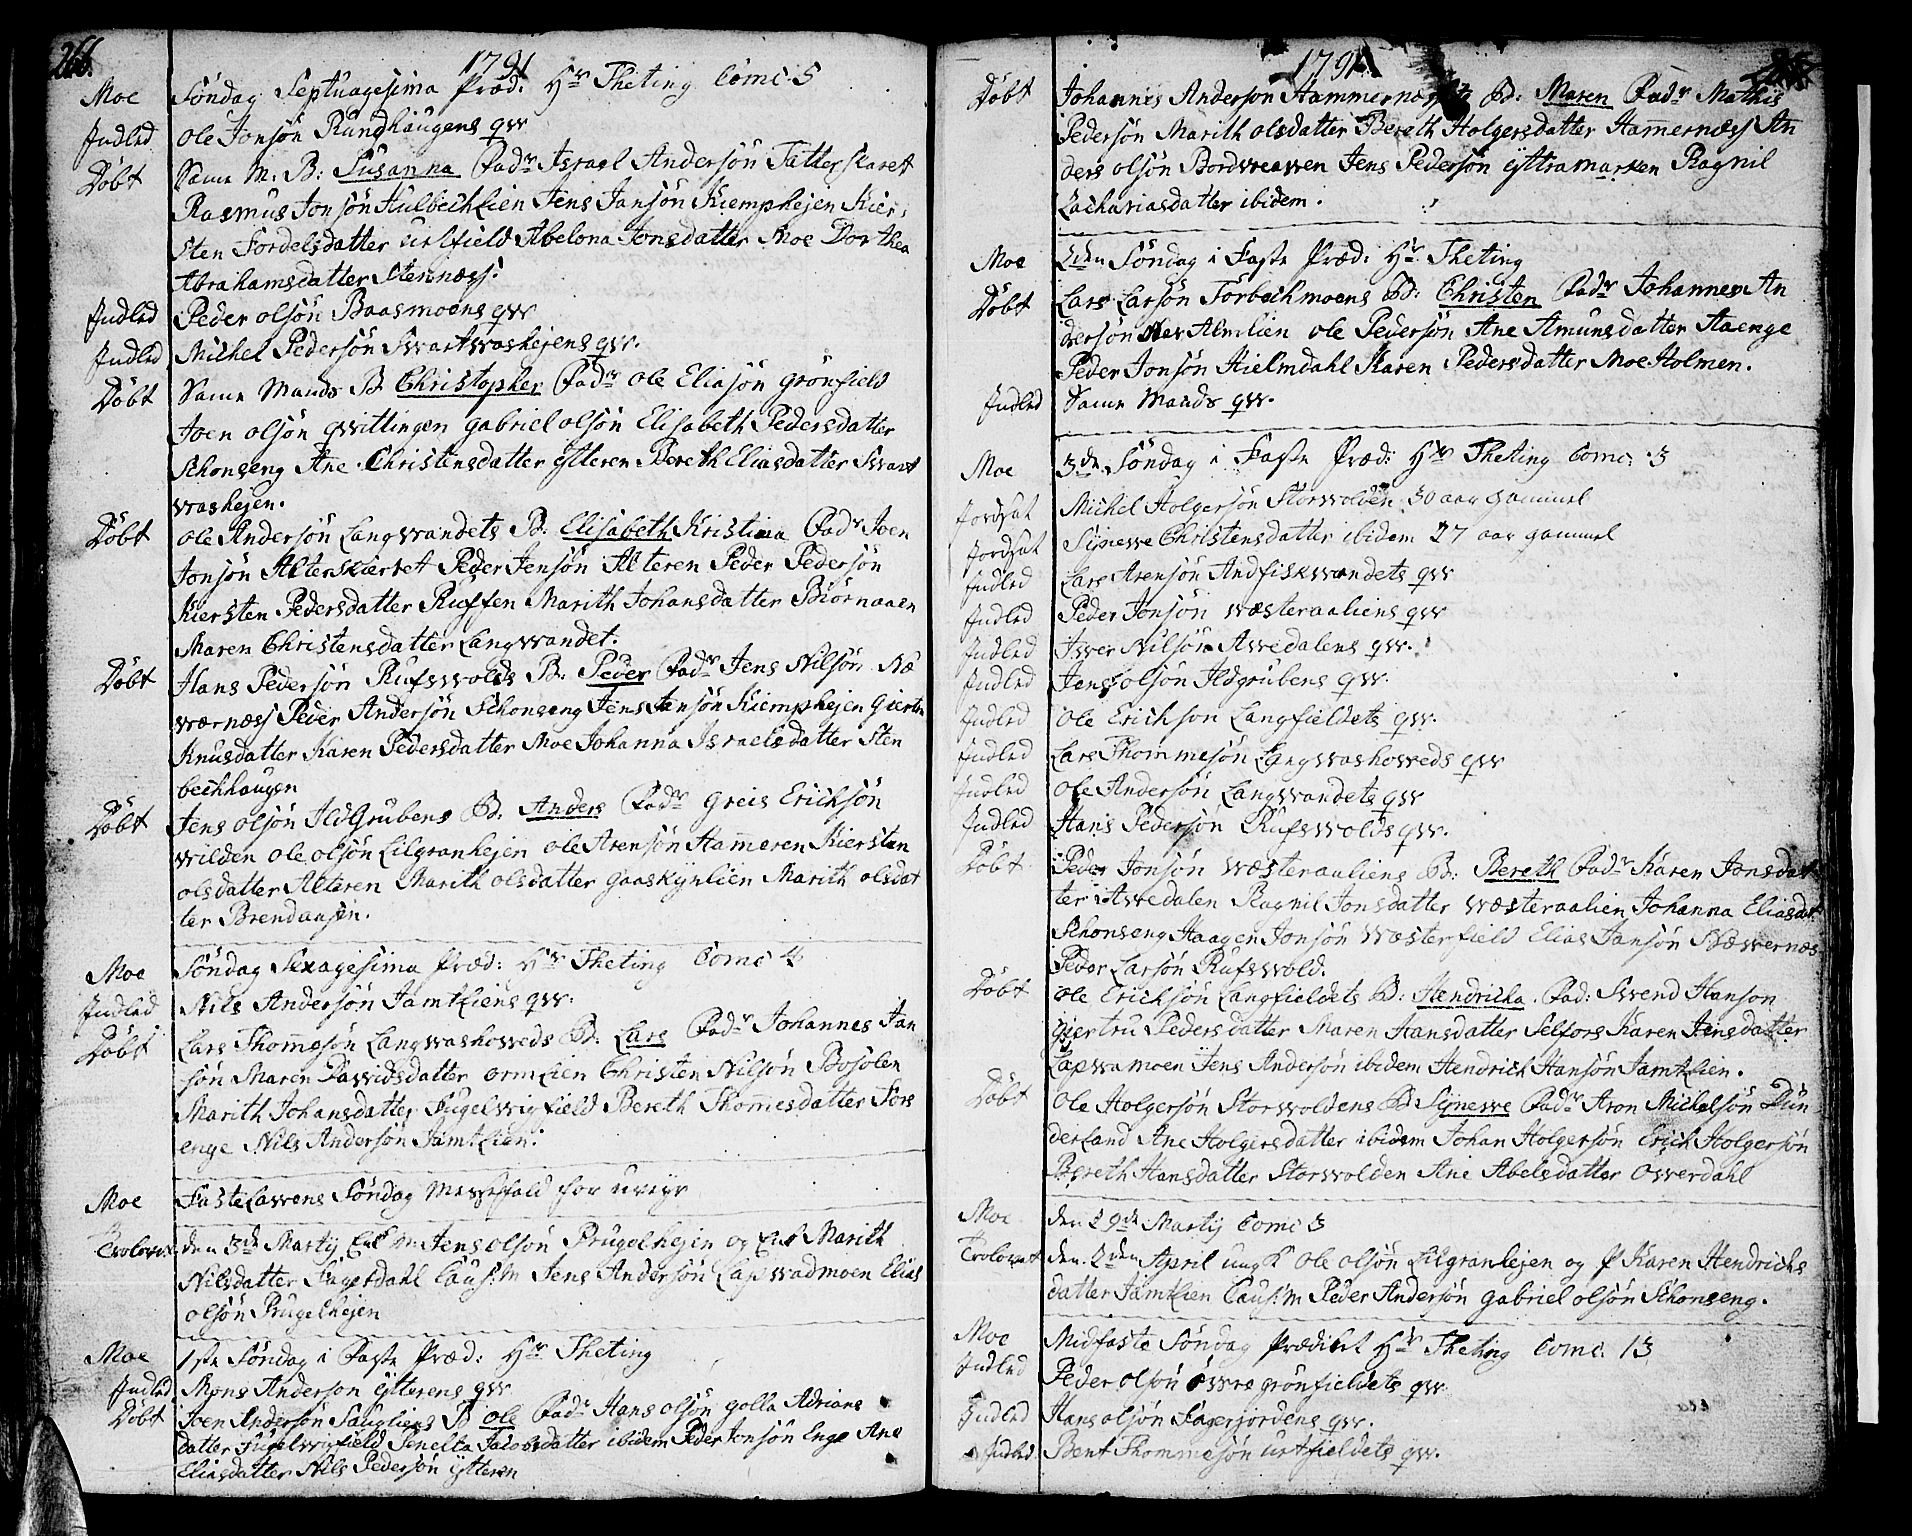 266.
1791
Moe Söndag Septuagesima Præd: Hr Theting Comc: 5
Indled Ole Jonsön Rundhaugens qvv
Döbt Same M. B: Susanna Fadr Israel Andersön Tatterskaret
Rasmus Jonsön Hulbechlien Jens Jansön Kiemphejen Kier,
sten Fordelsdatter urtfield Abelona Jonsdatter Moe Dorthea
Abrahamsdatter Stennæss.
Indled Peder olsön Baasmoens qvv
Indled Michel Pedersön Svartvashejens qvv.
Döbt Same Mands B Christopher Fadr Ole Eliasön grönfield
Joen olsön qvittingen gabriel olsön Elisabeth Pedersdatter
Schonseng Ane Christensdatter ytteren Bereth Eliasdatter Svart
vashejen.
Döbt Ole Andersön Langvandets B: Elisabeth Kristina Fadr Joen
Jonsön Alterskarvet Peder Jensön Alteren Peder Pedersön
Kiersten Pedersdatter Ruffen Marith Johansdatter Biörnaaen
Maren Christensdatter Langvandet.
Döbt Hans Pedersön Rufsvolds B: Peder Fadr Jens Nilsön Næ
værnæss Peder Andersön Schonseng Jens Jansön Kiemphejen giertru
Knusdatter Karen Pedersdatter Moe Johanna Israelsdatter Sten
bechhaugen
Döbt Jens olsön Ildgrubens B: Anders Fadr greis Erichsön
vilden ole olsön Lilgranhejen ole Arensön Hameren Kiersten
olsdatter Alteren Marith olsdatter gaaskynlien Marith olsdat
ter Brendaasen.
Moe Söndag Sexagesima Præd: Hr Theting Comc 4
Indled Nils Andersön Jamtliens qvv.
Döbt Lars Thomesön Langvashoveds B: Lars Fadr Johannes Jan
sön Maren Davidsdatter ormlien Christen Nilsön Bosolen
Marith Johansdatter Fugelvigfield Bereth Thomesdatter Fors
enge Nils Andersön Jamtlien.
Moe Fastelavens Söndag Messefald for uveyr
Trolovet den 3de Martij Enk M: Jens olsön Prugelhejen og Enk Marith
Nilsdatter Fagerdahl Caus: M Jens Andersön Lapvadmoen Elias
olsön Prugelhejen
Moe 1ste Söndag i Faste Præd: Hr Theting
Indled Mons Anderson ytterens qvv
Döbt Joen Andersön Saugliens B ole Fadr Hans olsön golla Adrians
datter Fugelvigfield Penelta Jacobsdatter ibidem Peder Jonsön Enge Ane
Eliasdatter Nils Pedersön ytteren
1791
Döbt Johannes Anderson Hammernæssets B: Maren Fadr Mathis
Pedersön Marith olsdatter Bereth Holgersdatter Hamernæss An
ders olsön Bordvreaven Jens Pedersön yttramarken Ragnil
Zachariasdatter ibidem.
Moe 2den Söndag i Faste Præd: Hr. Theting
Döbt Lars Larsön Torbechmoens B: Christen Fadr Johannes An
dersön Almlien ole Pedersön Ane Amunsdatter Aaenge
Peder Jonsön Hielmdahl Karen Pedersdatter Moe Holmen.
Indled Same Mands qvv.
Moe 3de Söndag i Faste Præd: Hr Theting Comc: 3
Jordsat Michel Holgersön Storvolden 30 aar gammel
Jordsat Synesve Christensdatter ibidem 27 aar gammel
Indled Lars Arensön Andfiskvandets qvv
Indled Peder Jonsön væsteraaliens qvv
Indled Iver Nilsön Avedalens qvv.
Indled Jens olsön Ildgrubens qvv.
Indled Ole Erichson Langfieldets qvv.
Indled Lars Thommesön Langvashoveds qvv
Indled Ole Andersön Langvandets qvv
Indled Hans Pedersön Rufsvolds qvv.
Döbt Peder Jonsön væsteraaliens B: Bereth Fadr Karen Jonsdat
ter i Avedalen Ragnil Jonsdatter væsteraalien Johanna Eliasdat
Schonseng Haagen Jonsön Wæsterfield Elias Jansön Næwernæs
Peder Larsön Rufsvold.
Döbt Ole Erichsön Langfieldets B: Hendricha Fad: Svend Hanson
giertru Pedersdatter Maren Hansdatter Selfors Karen Jensdatter
Lapvamoen Jens Andersön ibidem Hendrich Hansön Jamtlien.
Döbt Ole Holgersön Storvoldens B Synesve Fadr Aron Michelsön Dun
derland Ane Holgersdatter ibidem Johan Holgersön Erich Holgersön
Bereth Hansdatter Storvolden Ane Abelsdatter overdahl
Moe den 29de Martij Comc 3
Trolovet den 2den April ungK ole olsön Lilgranhejen og p Karen Hendrichs
datter Jamtlien Caus: M Peder Andersön gabriel olsön Schonseng.
Moe Midfaste Söndag Prædiket Hr Theting Comc. 13
Indled Peder olsön övre grönfieldets qvv
Indled Hans olsön Fagerjordens qvv.
Indled Bent Thommesön urtfieldets qvv.